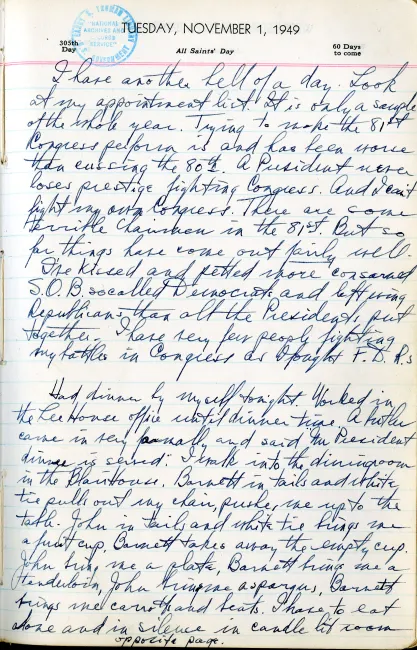 TUESDAY, NOVEMBER 1, 1949
305th Day
All Saints' Day
60 Days to come
HARRY S. TRUMAN LIBRARY
"NATIONAL ARCHIVES AND RECORDS SERVICE"
GOVERNMENT
I have another hell of a day. Look
at my appointment list. It is only a sample
of the whole year. Trying to make the 81st
Congress perform is and has been worse
than cussing the 80th. A President never
loses prestige fighting Congress. And I can't
fight my own Congress. There are some
terrible Chairmen in the 81st. But so
far things have come out fairly well.
I've kissed and petted more consarned
S.O.B. so called Democrats and left wing
Republicans than all the Presidents put
together. I have very few people fighting
my battles in Congress as I fought F.D.R.s
Had dinner by myself tonight. Worked in
the Lee House office until dinner time. A butler
came in very formally and said "Mr. President
dinner is served." I walk into the dining room
in the Blair House. Barnett in tails and white
tie pulls out my chair, pushes me up to the
table. John in tails and white tie brings me
a fruit cup, Barnett takes away the empty cup.
John brings me a plate, Barnett brings me a
tenderloin, John brings me asparagus, Barnett
brings me carrots and beets. I have to eat
alone and in silence in candle lit room
opposite page.